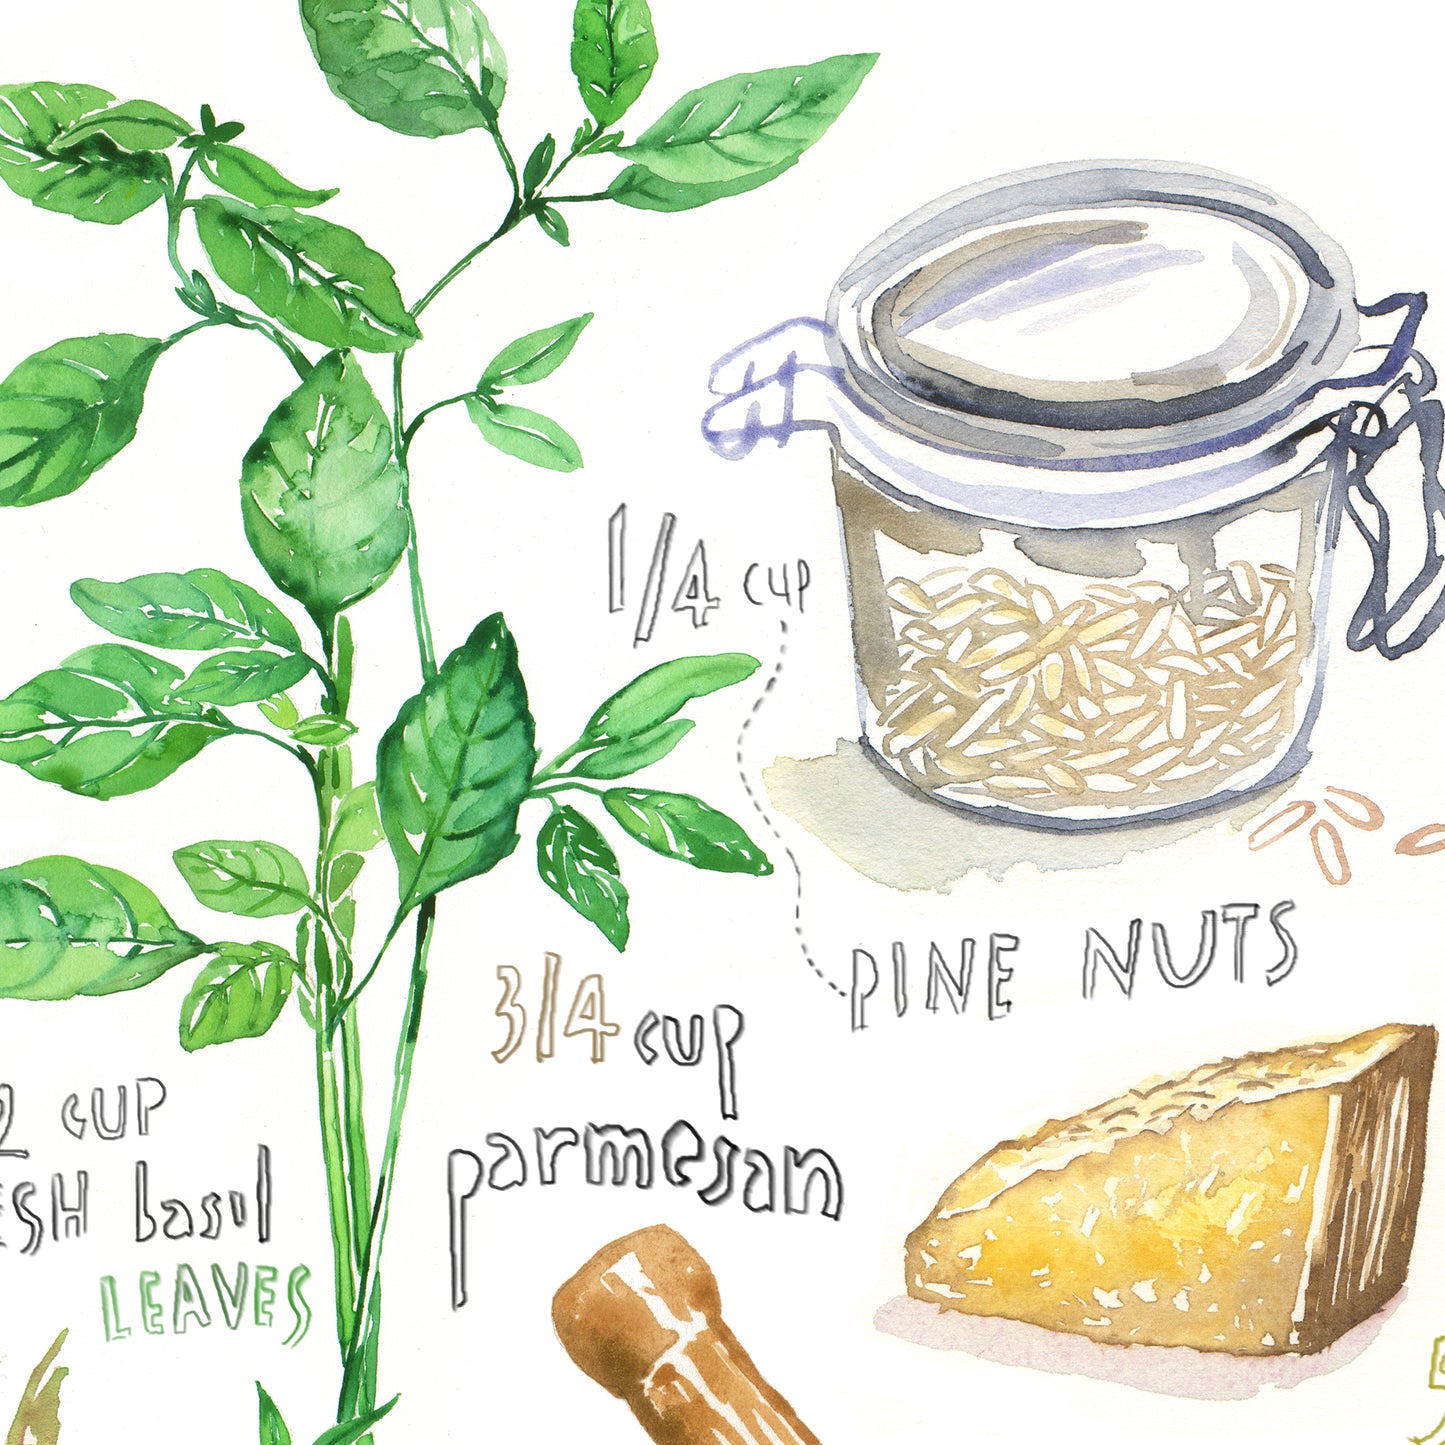 1/4 cup
PINE NUTS
3/4 cup
parmesan
2 CUP
ESH basil
LEAVES